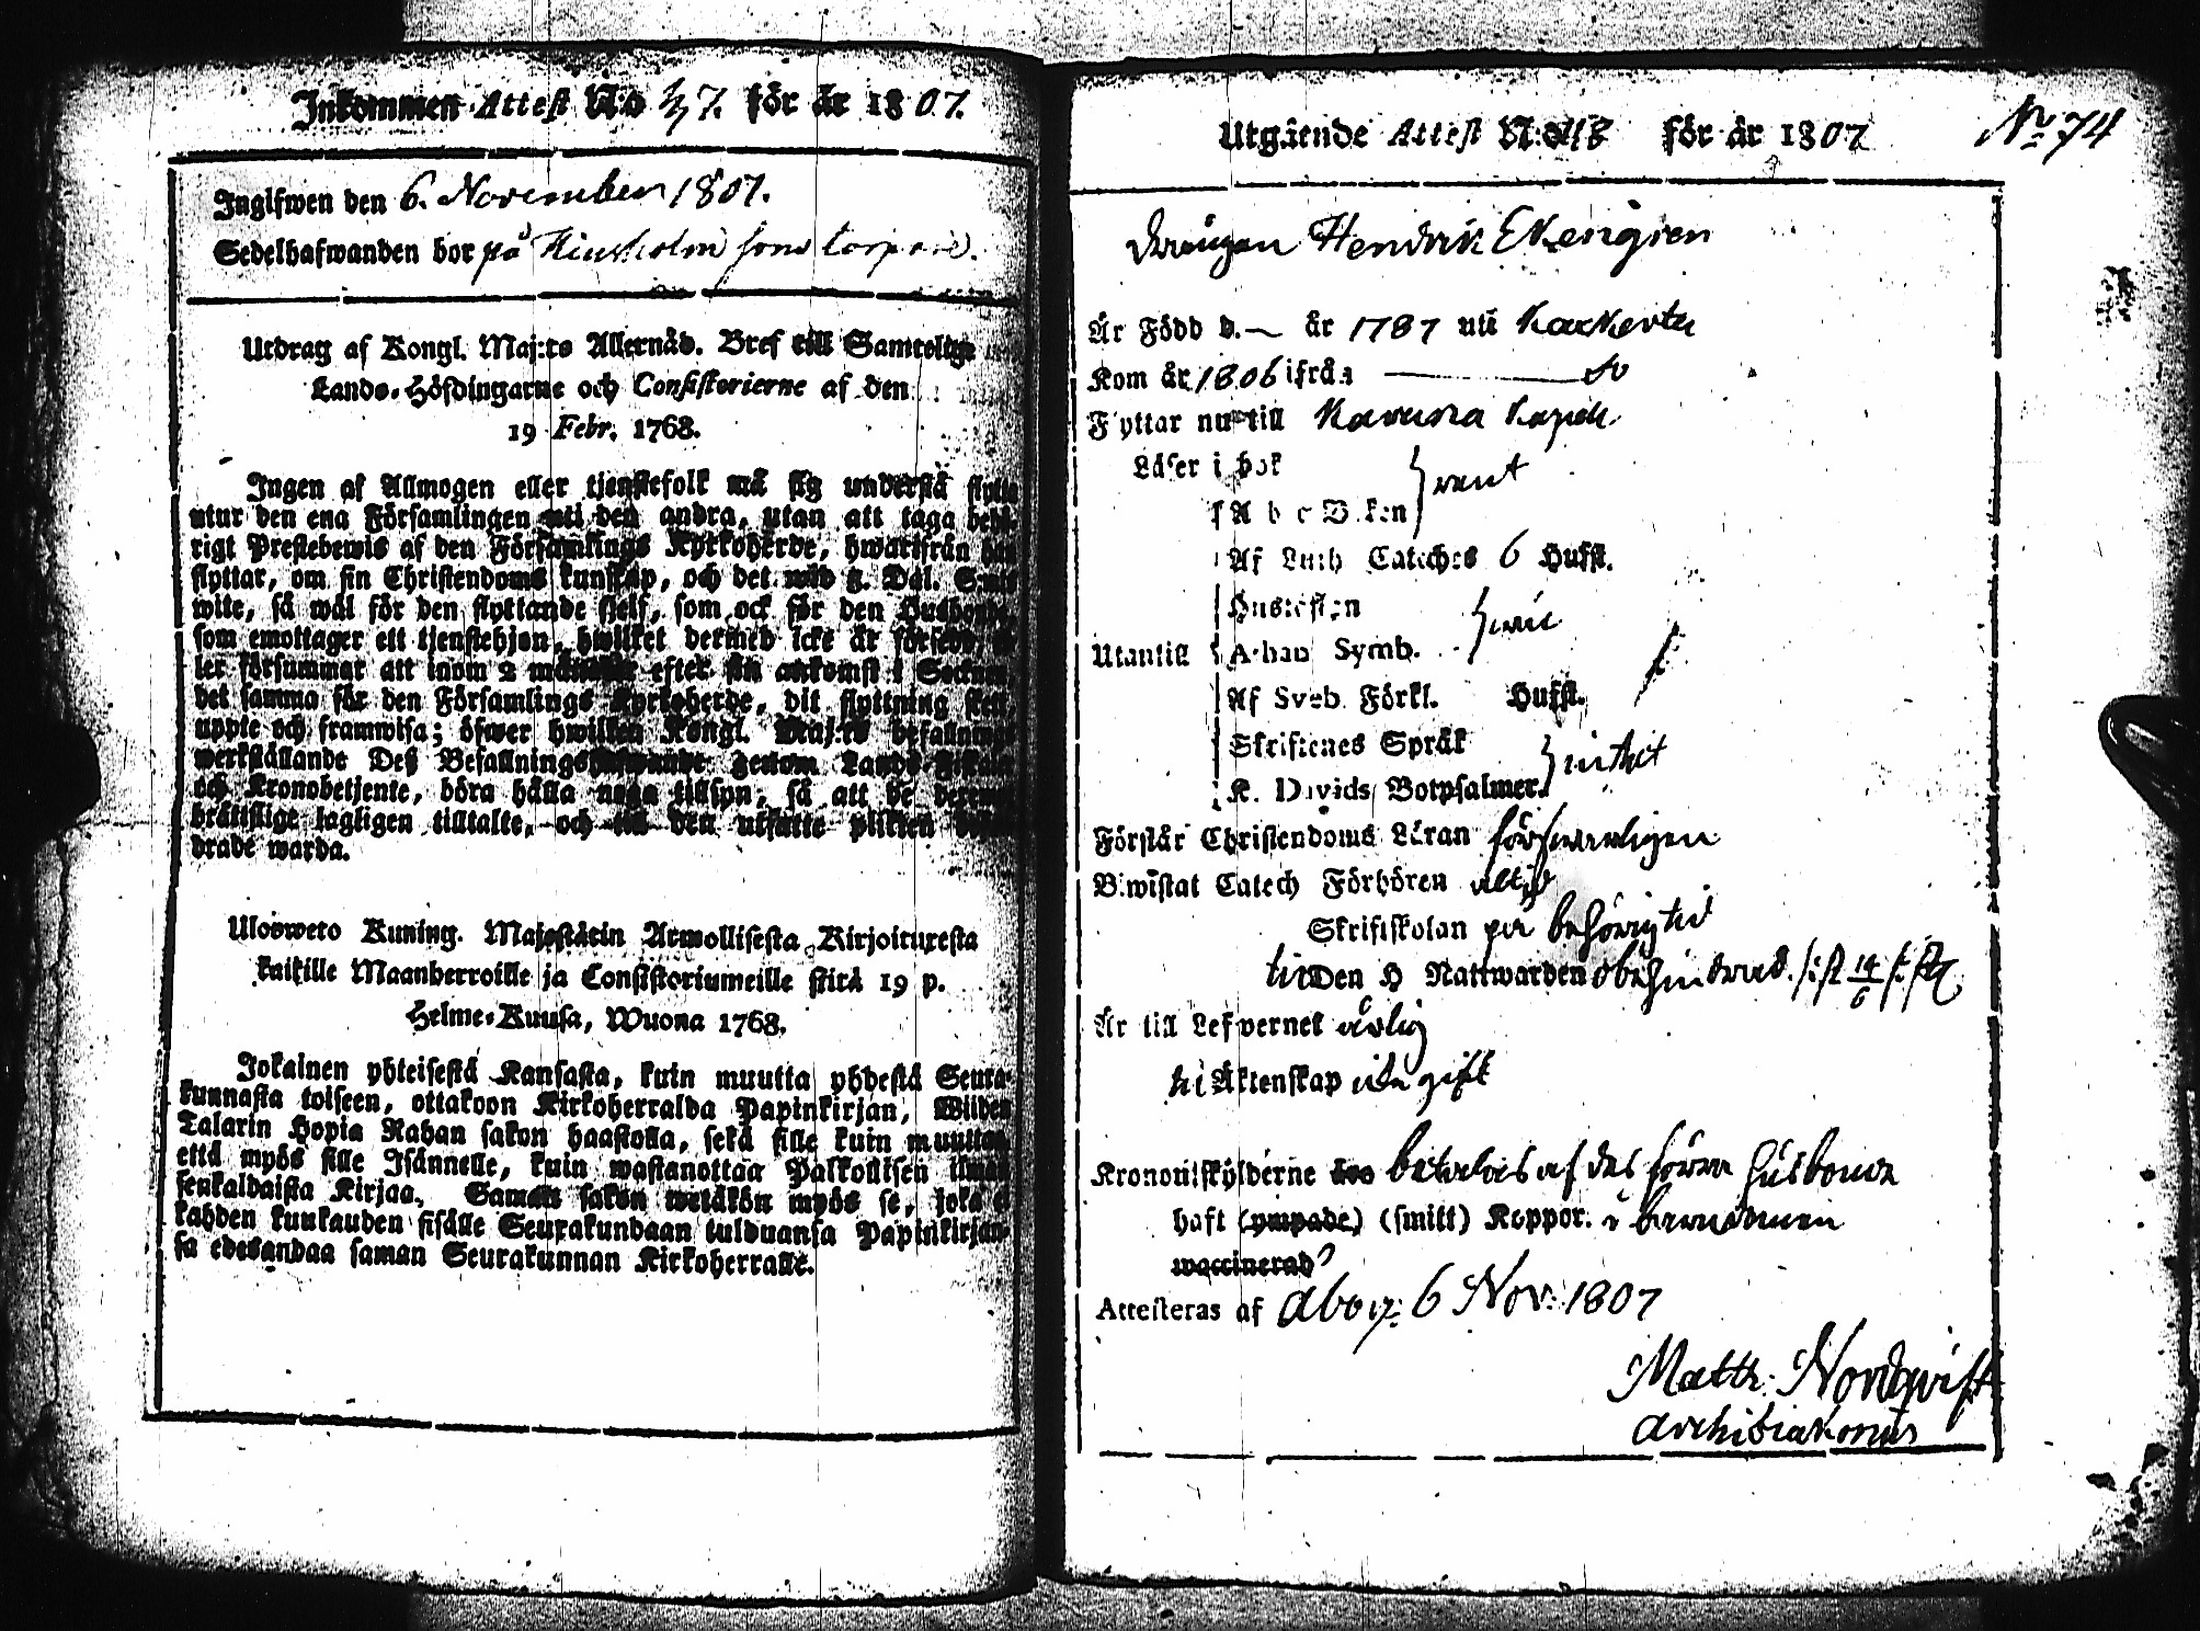 Inkommen Attest N:o 7. för år 1807.
Ingifwen den 6. November 1807.
Sedelhafwanden bor på som torpare.
Utdrag af Kongl. Maj:ts Allernåd. Bref till Samtelige
Lands-Höfdingarne och Consistorierne af den
19 Febr. 1768.
Ingen af Allmogen eller tjenstefolk må sig understå flytta
utur den ena Församlingen uti den andra, utan att taga behö-
rigt Prestebewis af den Församlings Kyrkoherde, hwarifrån han
flyttar, om sin Christendoms kunskap, och det wid 5. Dal. Smts
wite, så wäl för den flyttande sjelf, som ock för den Husbonde
som emottager ett tjenstehjon, hwilket dermed icke är försedt el-
ler försummar att inom 2 månader efter sin ankomst i Socknen
det samma för den Församlings Kyrkoherde, dit flyttning sker
uppte och framwisa; öfwer hwilken Kongl. Maj:ts befallning
werkställande Deß Befallningshafwande genom Lands-Fiskaler
och Kronobetjente, böra hålla noga tillsyn, så att de deremot
bråttslige lagligen tilltalte, och till den utsatte plikten
drade warda.
Ulosweto Kuning. Majestätin Armollisesta Kirjoituxesta
kaikille Maanherroille ja Consistoriumeille siitä 19 p.
Helme-Kuusa, Wuona 1768.
Jokainen yhteisestä Kansasta, kuin muutta yhdestä Seura-
kunnasta toiseen, ottakoon Kirkoherralda Papinkirjan, Wiiden
Talarin Hopia Rahan sakon haastolla, sekä sille kuin muuttaa
että myös sille Isännelle, kuin wastanottaa Palkollisen ilman
senkaldaista Kirjaa. Saman sakon wetäkön myös se, joka ei
kahden kuukauden sisälle Seurakundaan tulduansa Papinkirjan-
sa edesandaa saman Seurakunnan Kirkoherralle.
No 74
Utgående Attest N:o 118 för år 1807
Drängen Hendrik Ekengren
Är Född d. — år 1787 uti Kackerta
Kom år 1806 ifrån — do
Flyttar nu till Karuna Kapell
Läser i bok
A b c Boken } rent
Af Luth Cateches 6 Hufst.
Hustaflan
Utantill Athan Symb.
Af Sveb. Förkl. Hufst.
Skriftenes Språk
K. Davids Botpsalmer. } intet
Förstår Christendoms Läran försvarligen
Biwistat Catech Förhören altid
Skriftskolan på behörig tid
till Den H Nattwarden obehindrad.
Är till Lefwernet ärlig
till Äktenskap icke gift
Kronoutskylderne betalas af des förra husbonde
haft (ympade) (smitt) Koppor. i barndomen
waccinerad
Attesteras af Åbo 6 Nov. 1807
Matth: Nordqvist
Archidiakonus